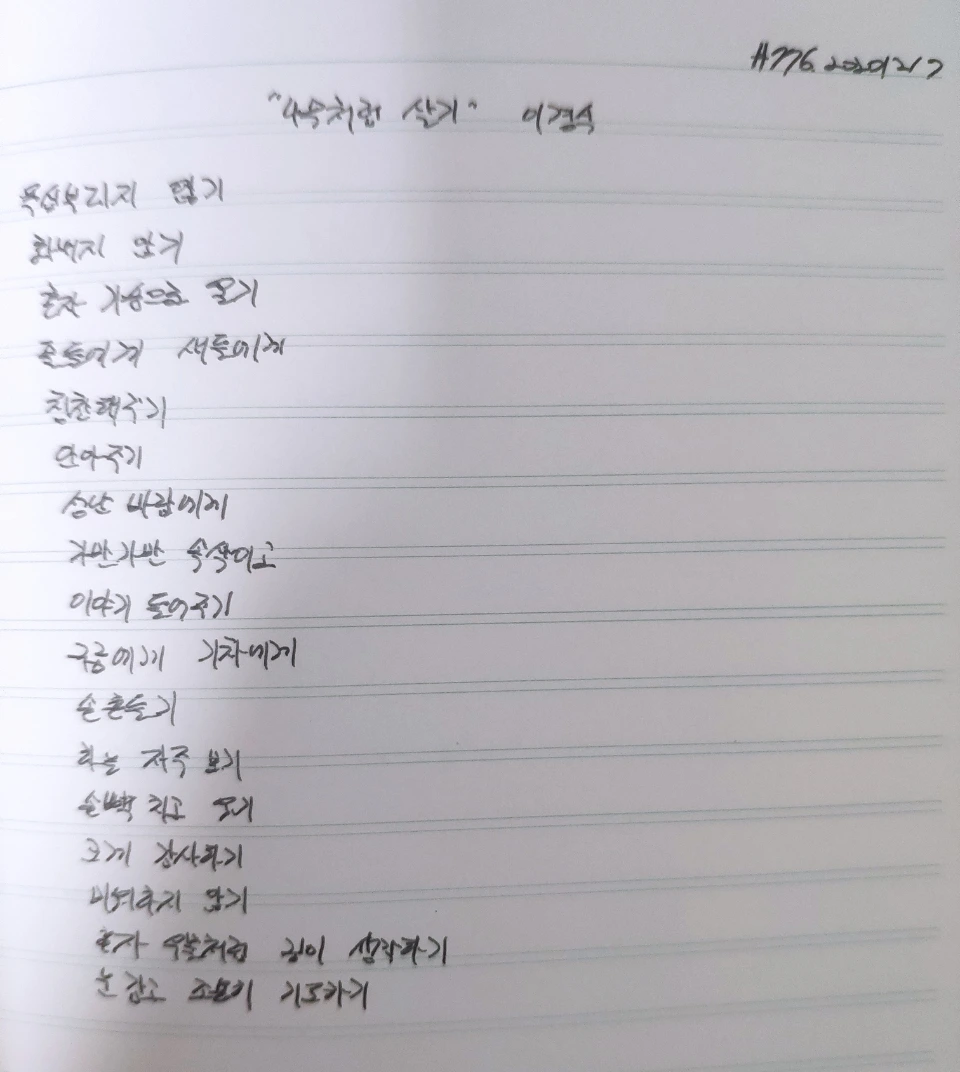 #776 20201217
"나무처럼 살기" 이경식
욕심부리지 않기
화내지 않기
혼자 가슴으로 울기
풀들에게 새들에게
칭찬해주기
안아주기
성난 바람에게
가만가만 속삭이고
이야기 들어주기
구름에게 기차에게
손흔들기
하늘 자주 보기
손뼉 치고 웃기
크게 감사하기
미워하지 않기
혼자 우물처럼 깊이 생각하기
눈감고 조용히 기도하기